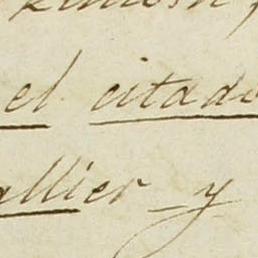 el citado
allier y